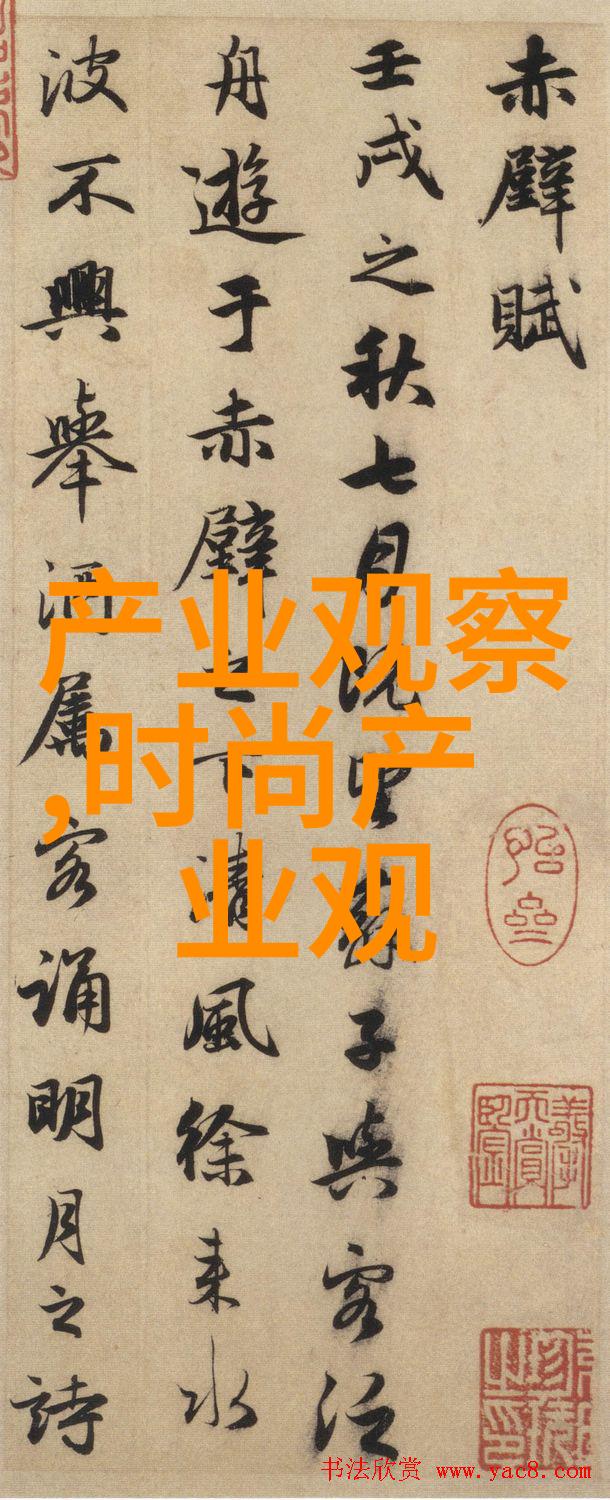 赤壁賦
壬戌之秋七月既望蘇子與客泛
舟遊于赤壁之下清風徐来水
波不興舉酒属客誦明月之詩
产业观察
,时尚产
业观
书法欣赏 www.yac8.com